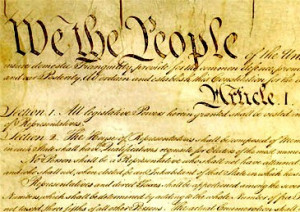 We the People
of the Uni
insure domestic Tranquility, provide for the common defence, promo
and our Posterity, do ordain and establish this Constitution for the
Article. I.
Section. 1. All legislative Powers herein granted shall be vested in
of Representatives.
Section. 2. The House of Representatives shall be composed of Mem
in each State shall have Qualifications requisite for Electors of
No Person shall be a Representative who shall not have attained
and who shall not, when elected, be an Inhabitant of that State in which
Representatives and direct Taxes shall be apportioned among the seve
Numbers, which shall be determined by adding to the whole Number of